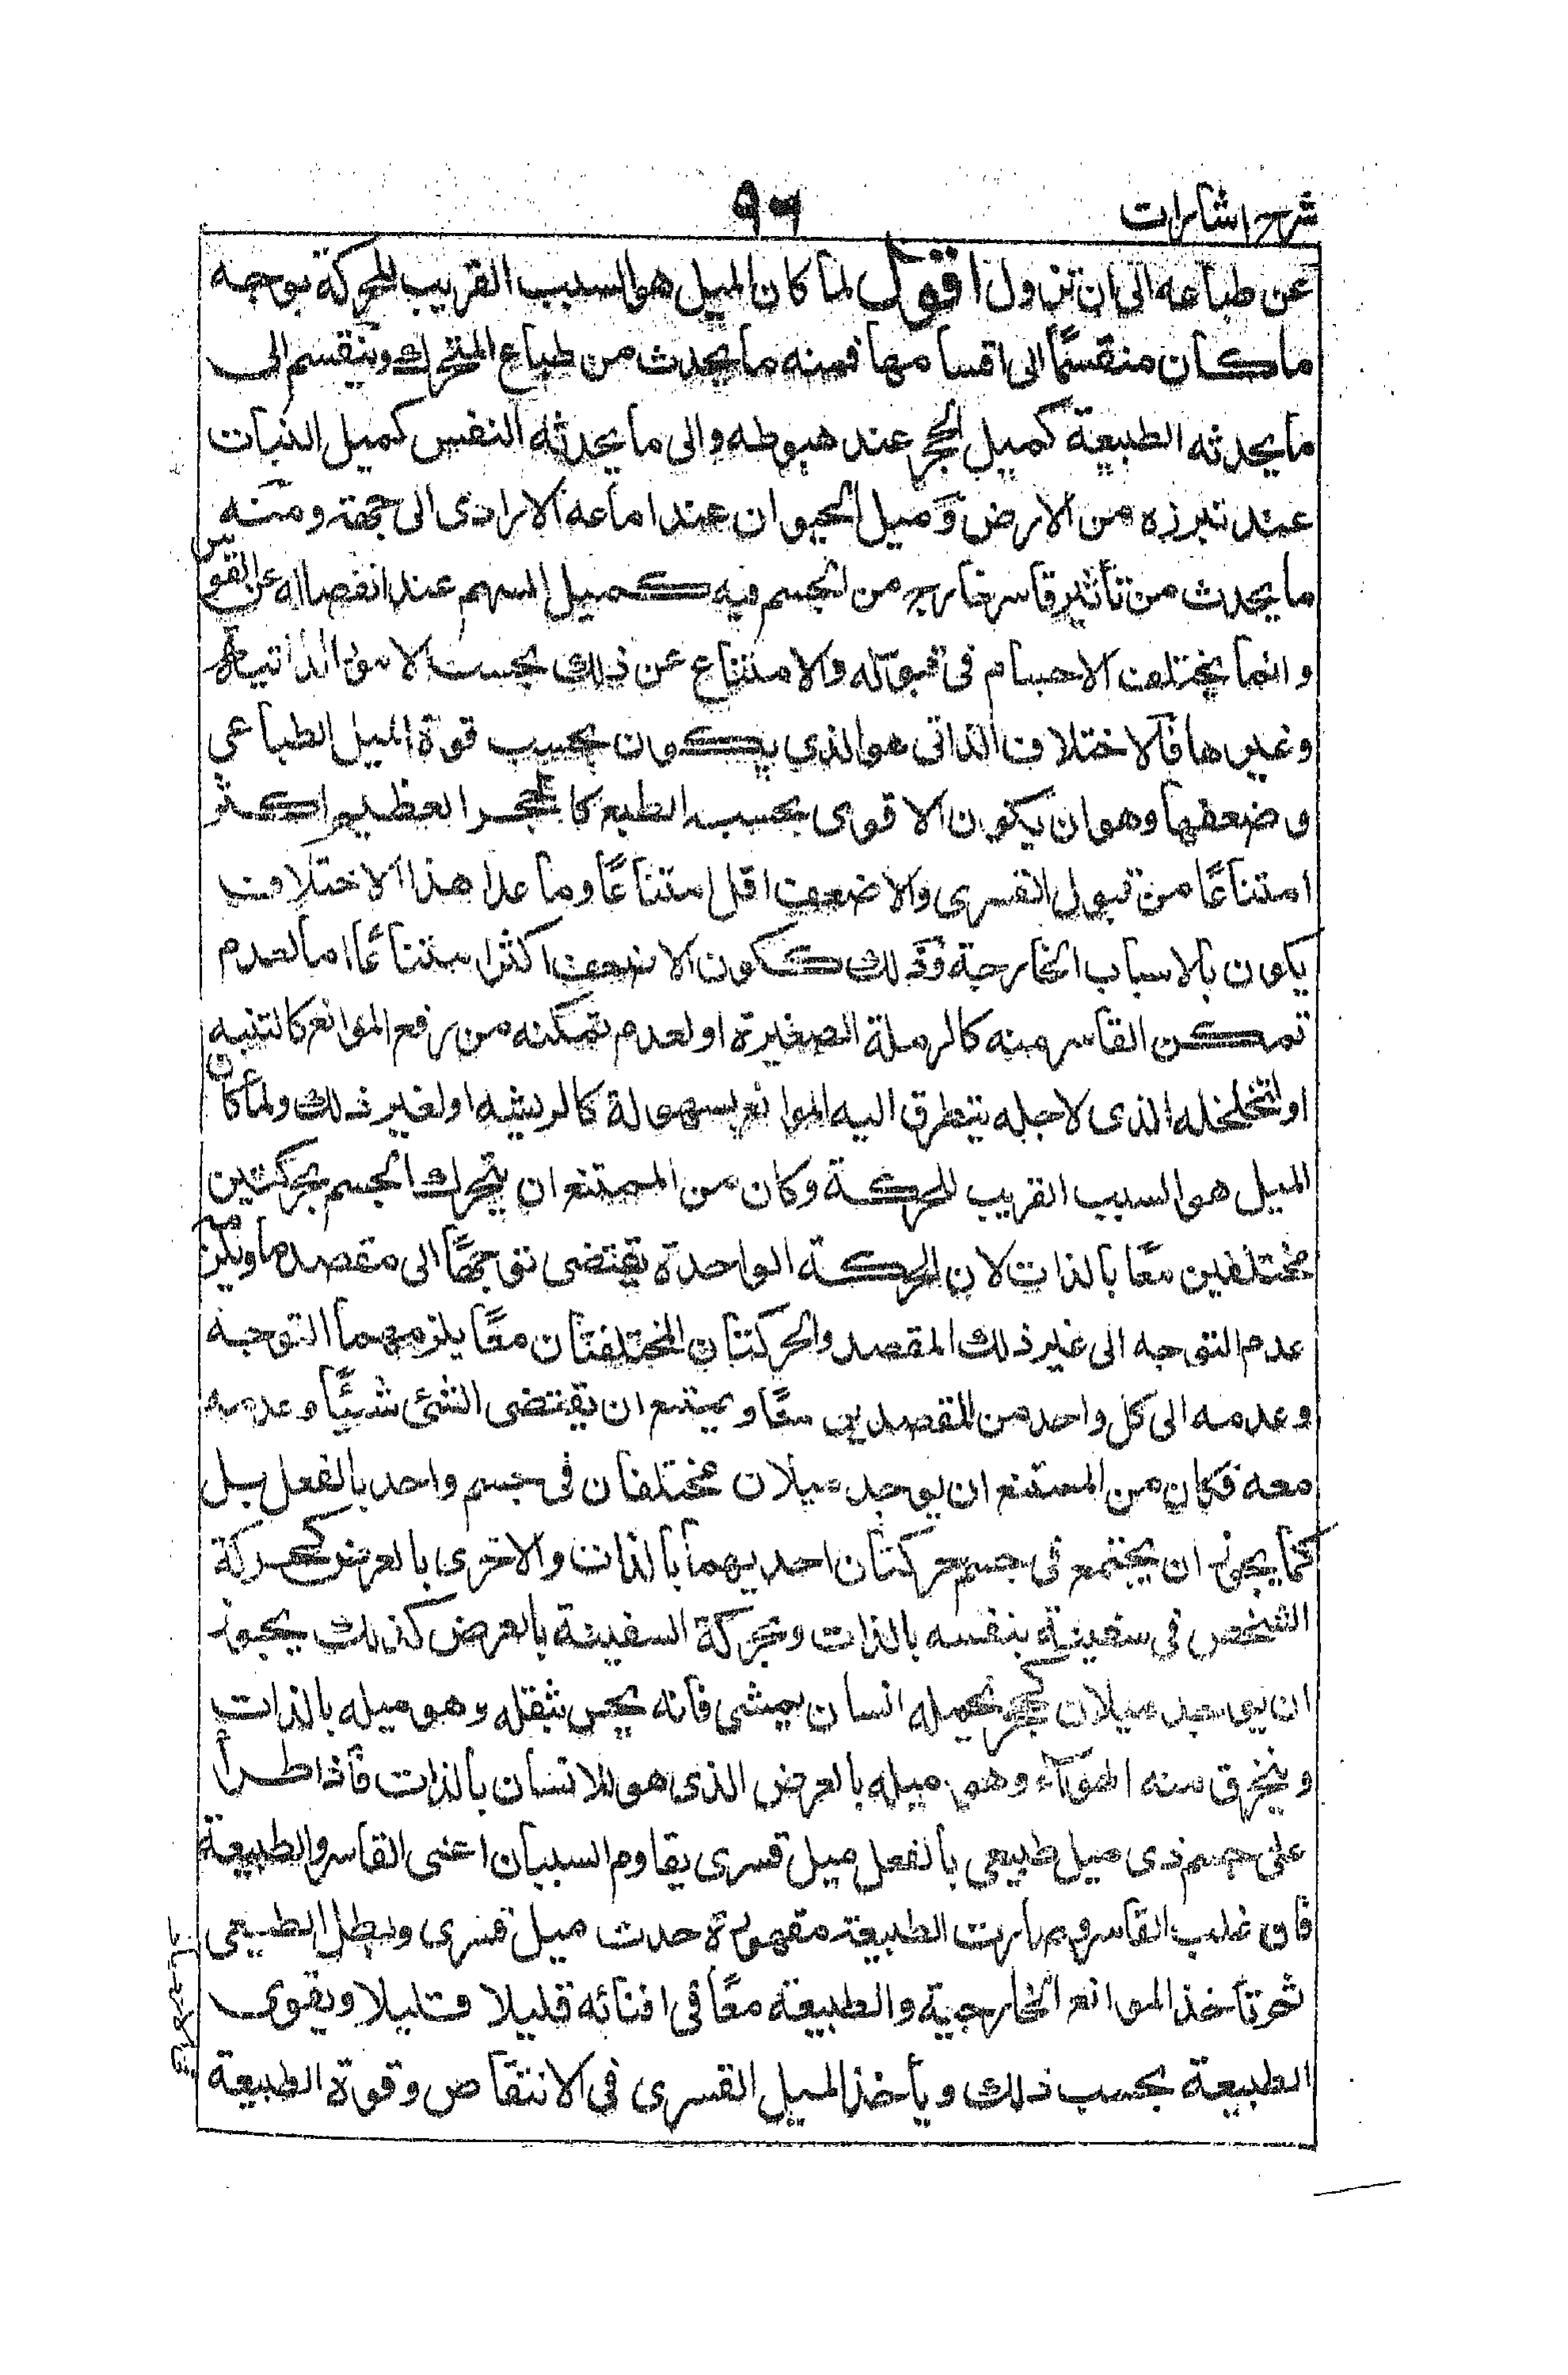 شرح اشارات
٩٦
عن طباعه الى ان تزول اقول لما كان الميل هو السبب القريب للحركة بوجه
ما كان منقسمًا الى اقسامها فمنه ما يحدث من طباع المتحرك وينقسم الى
ما يحدثه الطبيعة كميل الحجر عند هبوطه والى ما يحدثه النفس كميل النبات
عند تبرزه من الارض وميل الحيوان عند اندفاعه الارادى الى جهة ومنه
ما يحدث من تأثير قاسر خارج من الجسم فيه كميل السهم عند انفصاله عن القوس
وانما يختلف الاجسام فى قبوله والامتناع عن ذلك بحسب الامور الذاتية
وغيرها فالاختلاف الذاتى هو الذي يكون بحسب قوة الميل الطباعى
وضعفها وهو ان يكون الاقوى بحسب الطبع كالحجر العظيم اكثر
امتناعًا من قبول القسرى والاضعف اقل امتناعًا وما عدا هذا الاختلاف
يكون بالاسباب الخارجة وذلك ككون الاضعف اكثر امتناعًا اما لعدم
تمكن القاسر منه كالرملة الصغيرة او لعدم تمكنه من رفع الموانع كالتبنة
او لتخلخله الذى لاجله يتطرق اليه الموانع بسهولة كالريشه او لغير ذلك ولما كان
الميل هو السبب القريب للحركة وكان من الممتنع ان يتحرك الجسم بحركتين
مختلفين معًا بالذات لان الحركة الواحدة يقتضى توجهًا الى مقصد ما ويلزمه
عدم التوجه الى غير ذلك المقصد والحركتان المختلفتان معًا يلزمهما التوجه
وعدمه الى كل واحد من المقصدين معًا ويمتنع ان يقتضى الشئ شيئًا وعدمه
معه فكان من الممتنع ان يوجد ميلان مختلفان فى جسم واحد بالفعل بل
كما يجوز ان يجتمع فى جسم حركتان احديهما بالذات والاخرى بالعرض كحركة
الشخص فى سفينة بنفسه بالذات وبحركة السفينة بالعرض كذلك يجوز
ان يوجد ميلان كحجر يحمله انسان يمشى فانه يحس بثقله وهو ميله بالذات
وينخرق منه الهوآء وهو ميله بالعرض الذى هو للانسان بالذات فاذا طرأ
على جسم ذى ميل طبيعى بالفعل ميل قسرى يقاوم السببان اعنى القاسر والطبيعة
فان غلب القاسر وصارت الطبيعة مقهورة حدث ميل قسرى وبطل الطبيعى
ثم تأخذ الموانع الخارجية والطبيعة معًا فى افنائه قليلا قليلا ويقوى
الطبيعة بحسب ذلك ويأخذ الميل القسرى فى الانتقاص وقوة الطبيعة